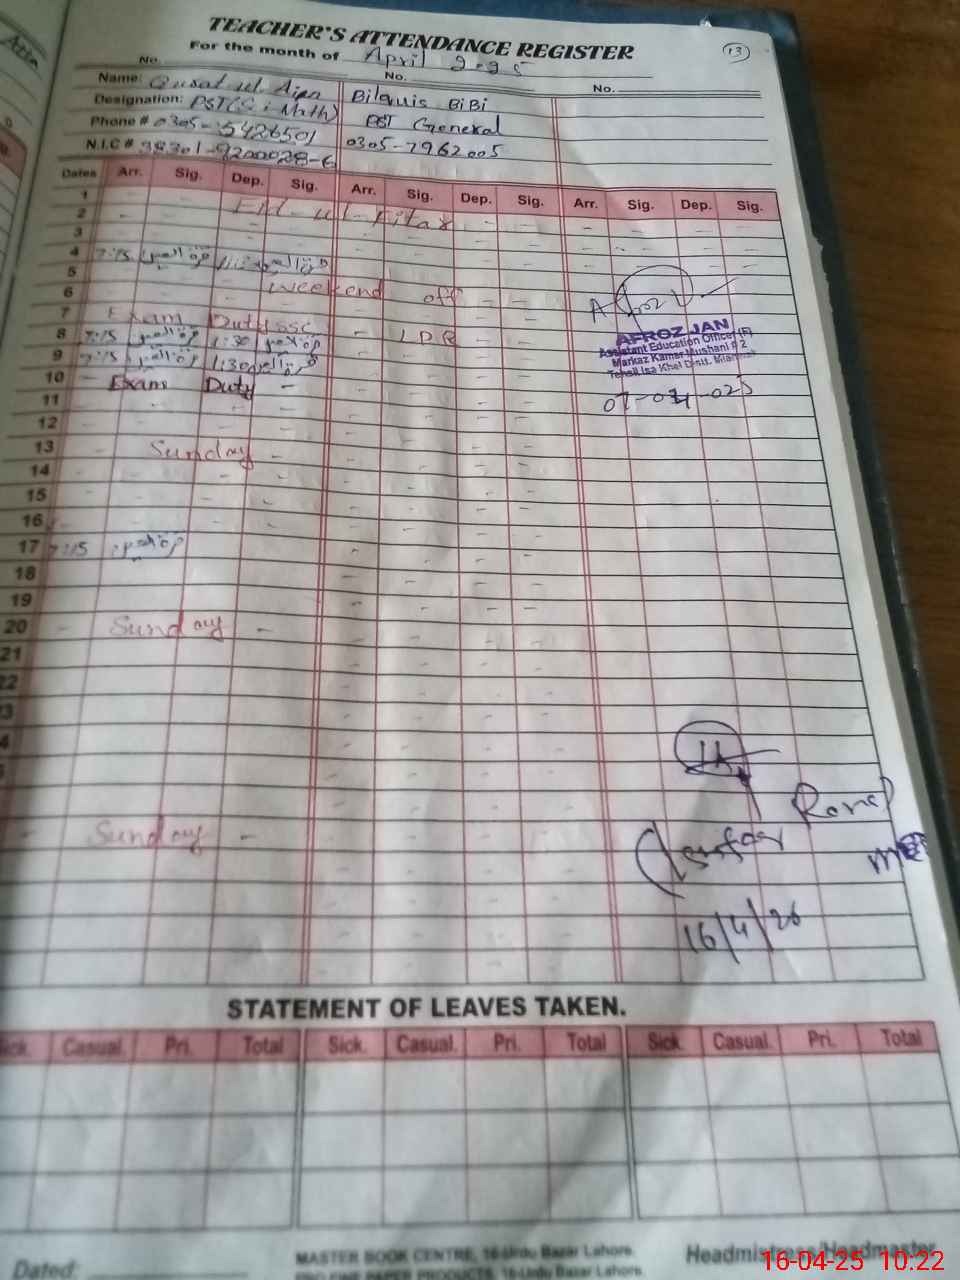 TEACHER'S ATTENDANCE REGISTER
13
For the month of April 2025
No. No. No.
Name: Qurat ul Ain Bilquis BiBi
Designation: PST (Sci Math) PST General
Phone # 0305-5426501 0305-7962005
N.I.C # 38301-9200028-6
Dates Arr. Sig. Dep. Sig. Arr. Sig. Dep. Sig. Arr. Sig. Dep. Sig.
1
2 Eid-ul-Fitar
3
4 7:15 قرۃ العین
5
6 weekend off
7 Exam Duty SSC
8 7:15 قرۃ العین 1:30 قرۃ العین
9 7:15 قرۃ العین 1:30 قرۃ العین
10 Exam Duty
11
12
13 Sunday
14
15
16
17 7:15 قرۃ العین
18
19
20 Sunday
21
22
23
Sunday
AFROZ JAN
Assistant Education Officer (F)
Markaz Kamar Mushani # 2
Tehsil Isa Khel Distt. Mianwali
16/4/26
STATEMENT OF LEAVES TAKEN.
Sick. Casual. Pri. Total Sick. Casual. Pri. Total Sick. Casual. Pri. Total
Dated:
MASTER BOOK CENTRE, 16-Urdu Bazar Lahore.
PRO-FINE PAPER PRODUCTS, 16-Urdu Bazar Lahore.
Headmistress/Headmaster
16-04-25 10:22